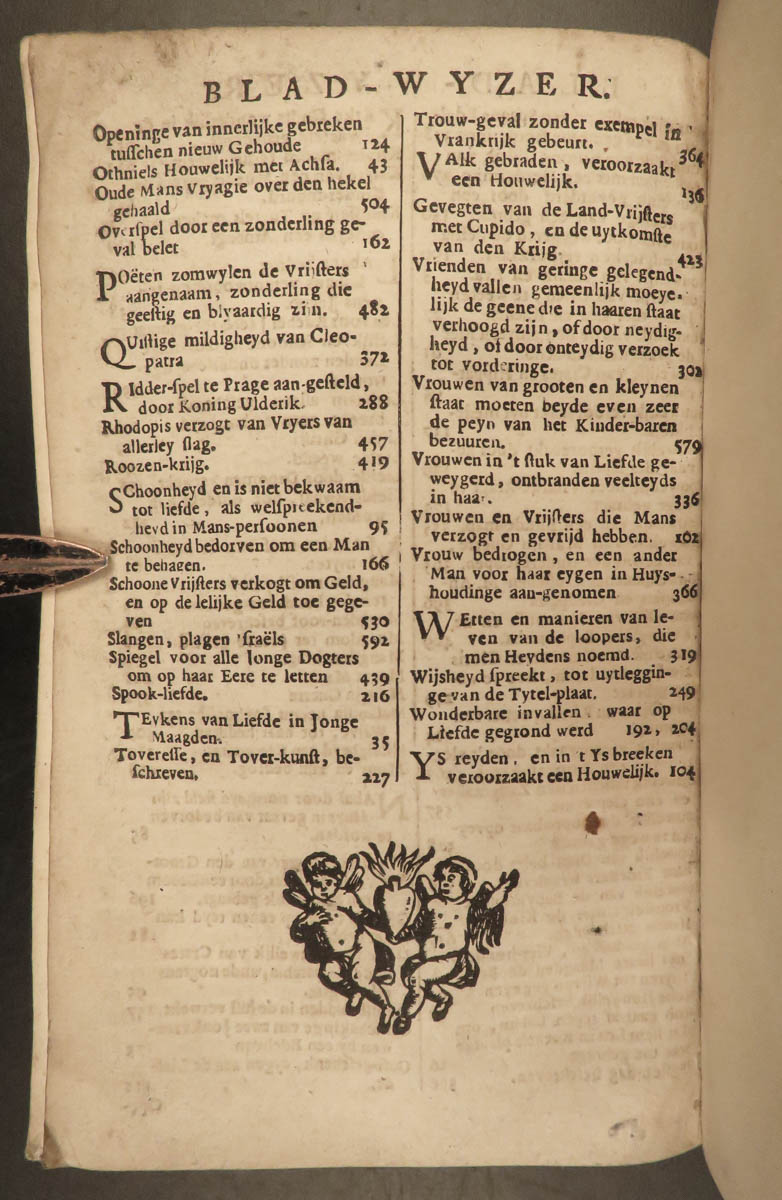 BLAD-WYZER.
Openinge van innerlijke gebreken
tusschen nieuw Gehoude 124
Othniels Houwelijk met Achsa. 43
Oude Mans Vryagie over den hekel
gehaald 504
Overspel door een zonderling ge-
val belet 162
POëten zomwylen de Vrijsters
aangenaam, zonderling die
geestig en blyaardig zijn. 482
QUistige mildigheyd van Cleo-
patra 372
RIdder-spel te Prage aan-gesteld,
door Koning Ulderik. 288
Rhodopis verzogt van Vryers van
allerley slag. 457
Roozen-krijg. 419
SChoonheyd en is niet bekwaam
tot liefde, als welspreekend-
heyd in Mans-persoonen 95
Schoonheyd bedorven om een Man
te behagen. 166
Schoone Vrijsters verkogt om Geld,
en op de lelijke Geld toe gege-
ven 530
Slangen, plagen 'sraëls 592
Spiegel voor alle Jonge Dogters
om op haar Eere te letten 439
Spook-liefde. 216
TEykens van Liefde in Jonge
Maagden. 35
Toveresse, en Tover-kunst, be-
schreven. 227
Trouw-geval zonder exempel in
Vrankrijk gebeurt. 364
VAlk gebraden, veroorzaakt
een Houwelijk. 136
Gevegten van de Land-Vrijsters
met Cupido, en de uytkomste
van den Krijg. 423
Vrienden van geringe gelegend-
heyd vallen gemeenlijk moeye-
lijk de geene die in haaren staat
verhoogd zijn, of door neydig-
heyd, of door onteydig verzoek
tot vorderinge. 302
Vrouwen van grooten en kleynen
staat moeten beyde even zeer
de peyn van het Kinder-baren
bezuuren. 579
Vrouwen in 't stuk van Liefde ge-
weygerd, ontbranden veelteyds
in haat. 336
Vrouwen en Vrijsters die Mans
verzogt en gevrijd hebben. 102
Vrouw bedrogen, en een ander
Man voor haar eygen in Huys-
houdinge aan-genomen 366
WEtten en manieren van le-
ven van de loopers, die
men Heydens noemd. 319
Wijsheyd spreekt, tot uytleggin-
ge van de Tytel-plaat. 249
Wonderbare invallen. waar op
Liefde gegrond werd 192, 204
YS reyden, en in 't Ys breeken
veroorzaakt een Houwelijk. 104